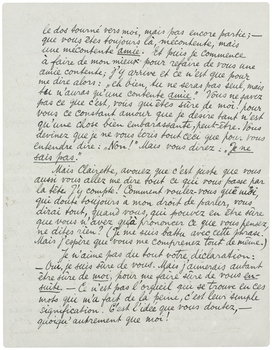 le dos tourné vers moi, mais pas encore partie;—
que vous êtes toujours là, mécontente, mais
une mécontente amie. Et puis je commence
à faire de mon mieux pour refaire de vous une
amie contente; j'y arrive et ce n'est que pour
me dire alors: „eh bien, tu ne seras pas seul, mais
tu n'auras qu'une contente amie! Vous ne savez
pas ce que c'est, vous qui êtes sûre de moi! pour
vous ce constant amour que je désire tant n'est
qu'une chose bien embarrassante, peut-être. Vous
devinez que je ne vous écris tout cela que pour vous
entendre dire: „Non!" Mais vous direz: „Je ne
sais pas."
Mais Clairette, avouez que c'est juste que vous
aussi vous allez me dire tout ce qui vous passe par
la tête. J'y compte! Comment voulez-vous que moi,
qui doute toujours à mon droit de parler, vous
dirai tout, quand vous, qui pouvez en être sûre
que vous n'avez qu'à prononcer ce que vous pensez,
ne dites rien? (Je me suis battu avec cette phrase.
Mais j'espère que vous me comprenez tout de même.)
Je n'aime pas du tout votre déclaration:
— Oui, je suis sûre de vous. Mais j'aimerais autant
être sûre de moi, pour me faire sûre de vous en-
suite. — Ce n'est pas l'orgueil qui se trouve en ces
mots qui m'a fait de la peine, c'est leur simple
signification. C'est l'idée que vous doutez,—
quoiqu'autrement que moi!